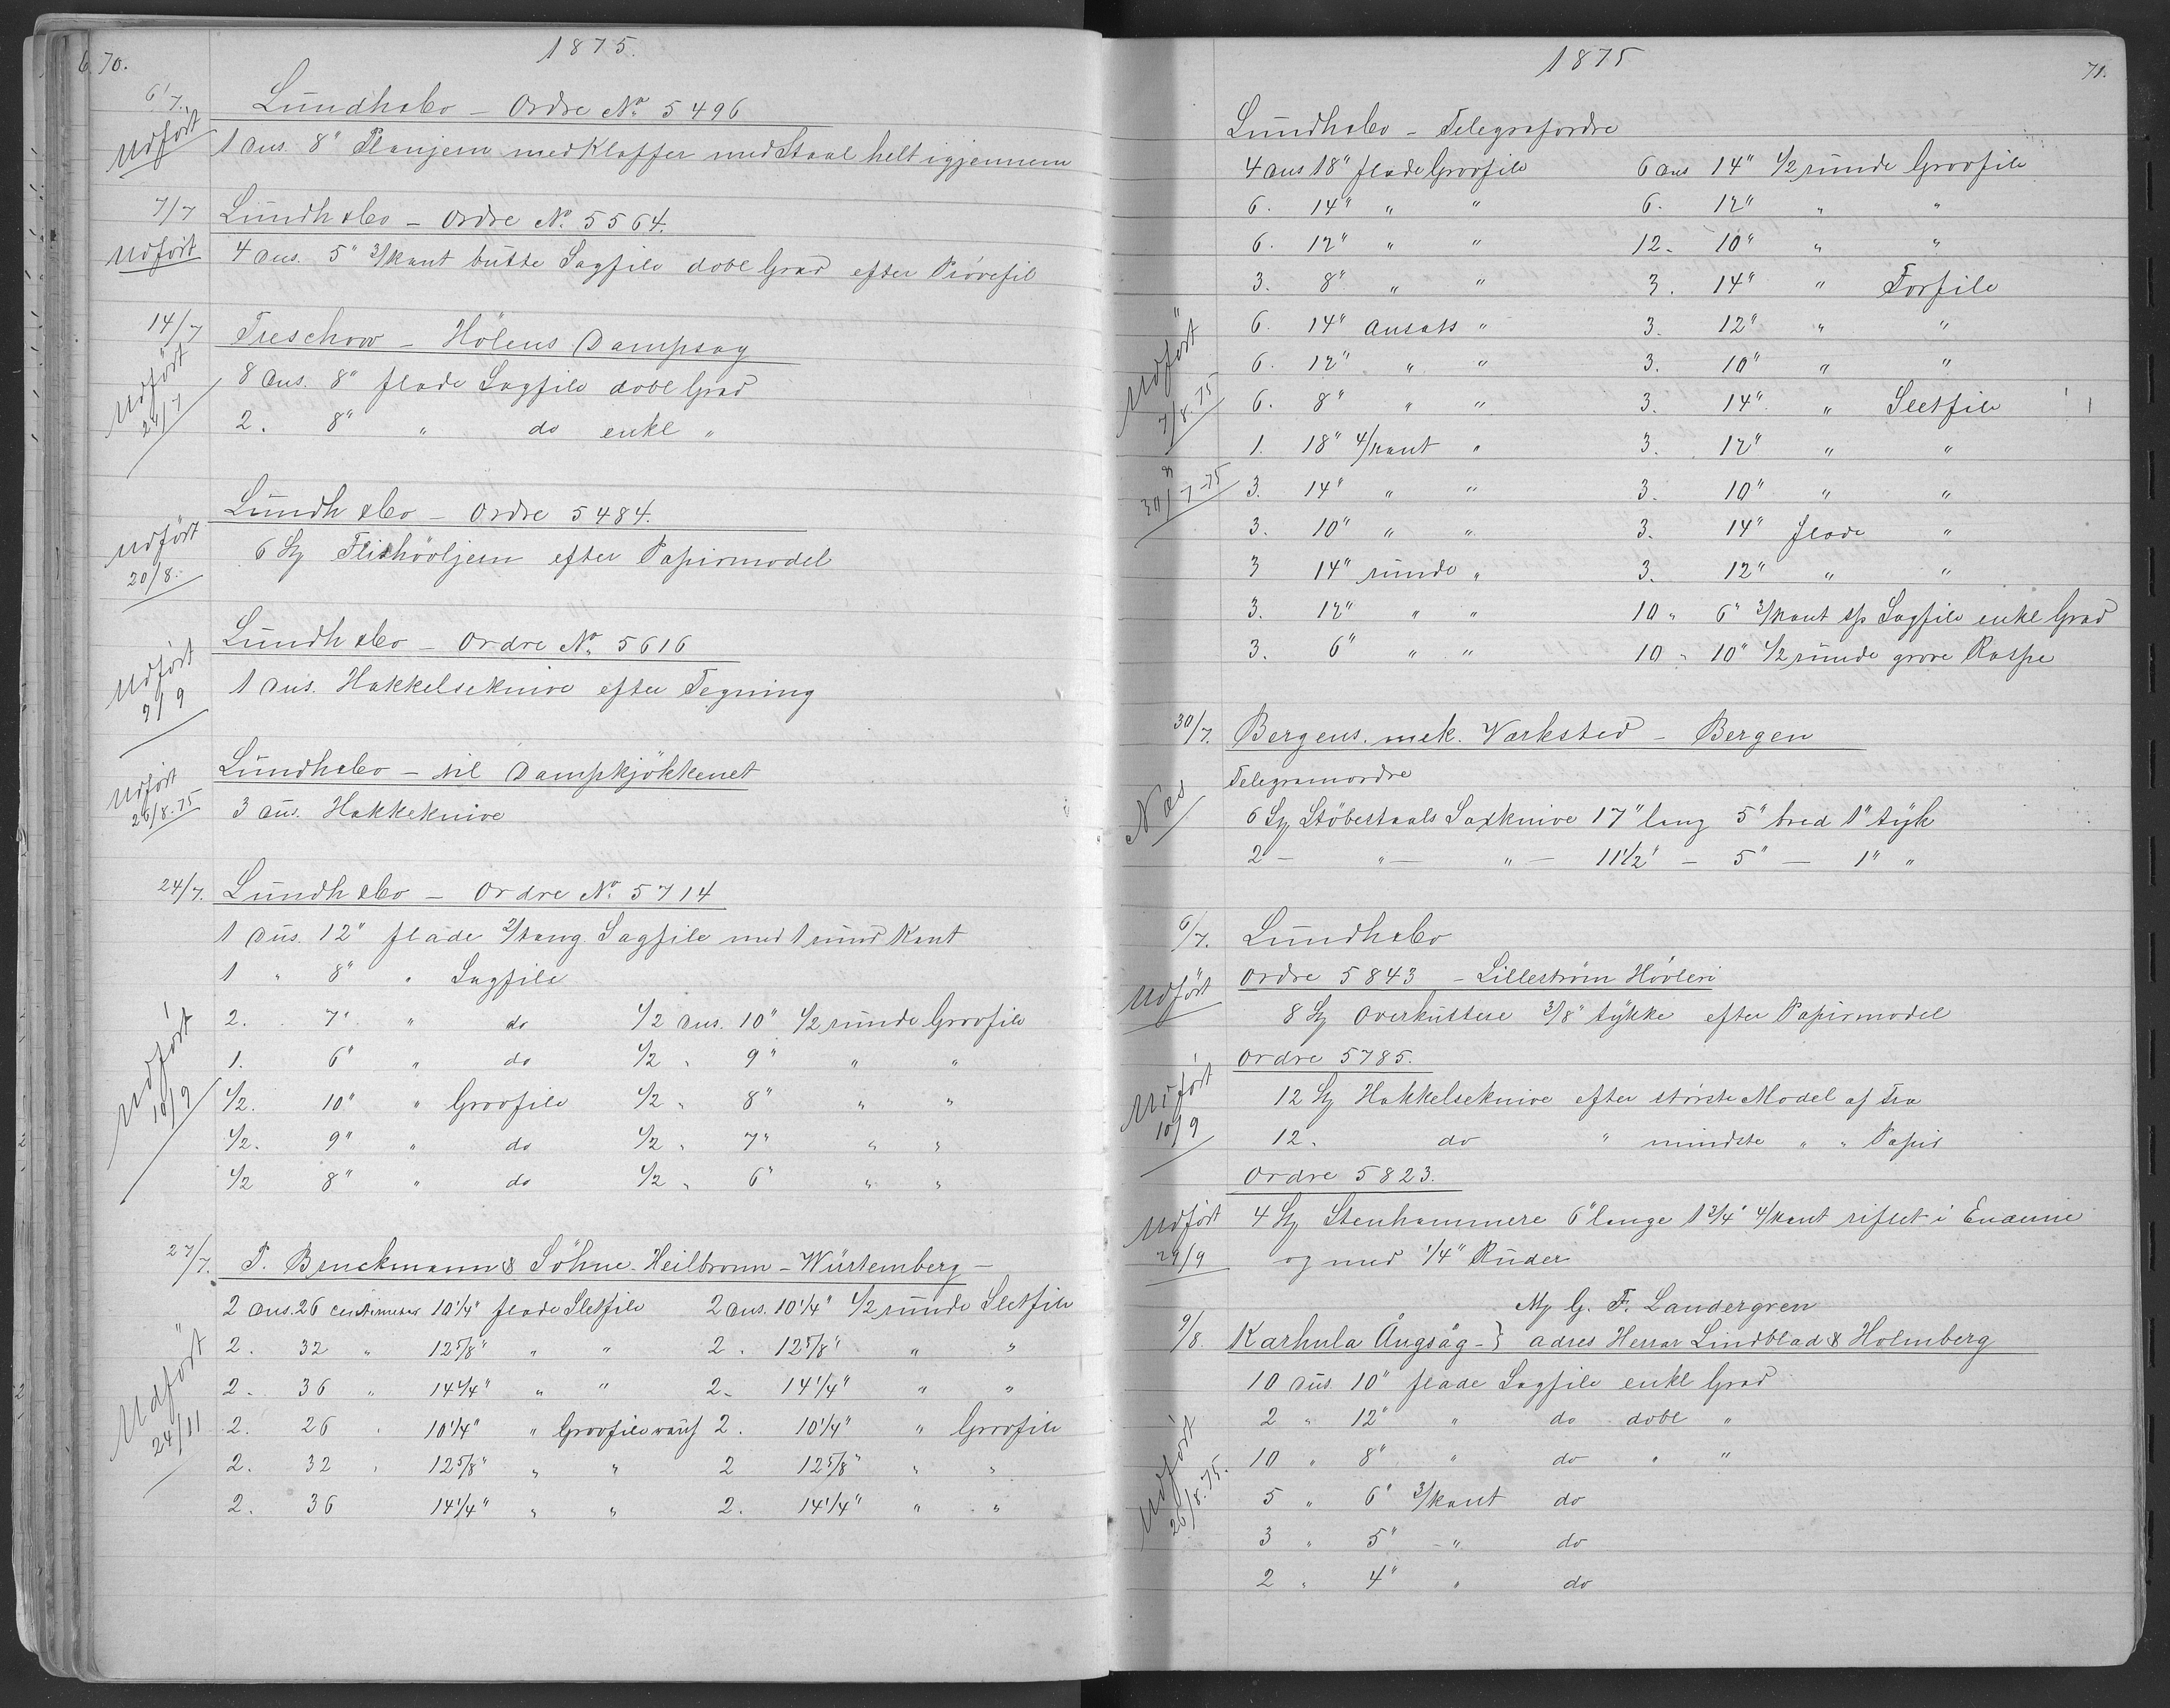 6. 70.
1875.
6/7.
Lundh & Co – Ordre No. 5496
Udført
1 Dus. 8" Planjern med Klaffer med Staal helt igjennem
7/7
Lundh & Co – Ordre No. 5564.
Udført
4 Dus. 5" 3/kant butte Sagfile dobl Grad efter Prövefil
14/7
Treschow – Hölens Dampsag
Udført 24/7
8 Dus. 8" flade Sagfile dobl Grad
2. 8" " do enkl "
Lundh & Co – Ordre 5484.
Udført 20/8.
6 St Flishövljern efter Papirmodel
Lundh & Co – Ordre No. 5616
Udført 2/9
1 Dus. Hakkelseknive efter Tegning
Lundh & Co – til Dampkjökkenet
Udført 26/8.75
3 Dus. Hakkeknive
24/7.
Lundh & Co – Ordre No. 5714
1 Dus. 12" flade 2/tang. Sagfile med 1 rund Kant
1 " 8" " Sagfile
2. 7" " do 1/2 Dus. 10" 1/2 runde Grovfile
1. 6" " do 1/2 " 9" " "
Udført 10/9
1/2. 10" " Grovfile 1/2 " 8" " "
1/2. 9" " do 1/2 " 7" " "
1/2 8" " do 1/2 " 6" " "
27/7.
P. Bruckmann & Söhne – Heilbronn – Würtemberg –
2 Dus. 26 centimeter 10 1/4" flade Sletfile 2 Dus. 10 1/4" 1/2 runde Sletfile
2. 32 " 12 5/8" " " 2. 12 5/8" " "
2. 36 " 14 1/4" " " 2. 14 1/4" " "
Udført 24/11
2. 26 " 10 1/4" " Grovfile 2. 10 1/4" " Grovfile
2. 32 " 12 5/8" " " 2 12 5/8" " "
2. 36 14 1/4" " " 2. 14 1/4" " "
1875
71.
Lundh & Co – Telegrafordre
4 Dus 18" flade Grovfile 6 Dus 14" 1/2 runde Grovfile
6. 14" " " 6. 12" " "
6. 12" " " 12. 10" " "
3. 8" " " 3. 14" " Forfile
6. 14" Ansats " 3. 12" " "
6. 12" " " 3. 10" " "
Udført 7/8.75
6. 8" " " 3. 14" " Sletfile
1. 18" 4/kant " 3. 12" " "
30/7-75
3. 14" " " 3. 10" " "
3. 10" " " 3. 14" flade "
3 14" runde " 3. 12" " "
3. 12" " " 10 " 6" 3/kant sp Sagfile enkl Grad
3. 6" " " 10 " 10" 1/2 runde grove Raspe
30/7.
Bergens. mek. Værksted – Bergen
Telegramordre
Næs
6 St Stöbestaals Saxknive 17" lang 5" bred 1" tyk
2 – " – " – 11 1/2" – 5" – 1" "
6/7.
Lundh & Co
Ordre 5843 – Lilleström Hövleri
Udført
8 St Overkuttere 3/8" tykke efter Papirmodel
Ordre 5785.
Udført 10/9
12 St Hakkelseknive efter störste Model af Træ
12. do " mindste " " Papir
Ordre 5823.
Udført 29/9
4 St Stenhammere 6" lange 1 3/4" 4/kant riflet i Enderne
og med 1/4" Ruder
G. F. Landergren
9/8.
Karhula Ångsåg – } adres Herrar Lindblad & Holmberg
10 Dus. 10" flade Sagfile enkl Grad
2 " 12" " do dobl "
Udført 26/8.75.
10 " 8" " do " "
5 " 6" 3/kant do
3 " 5" – " do
2 " 4" " do